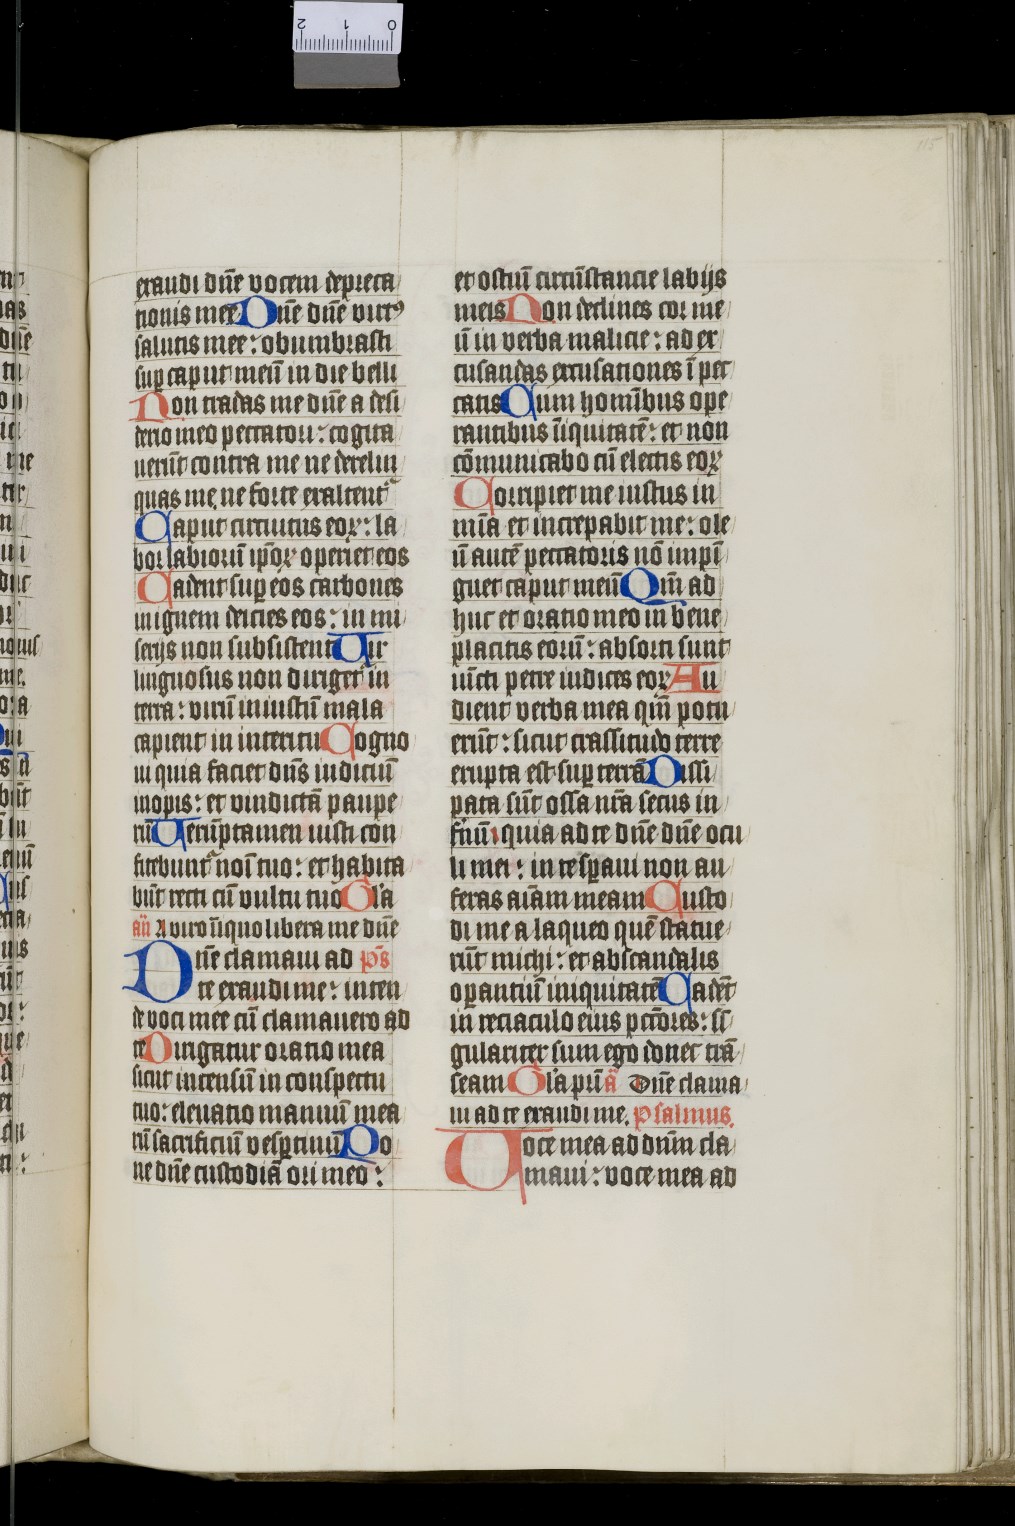 115
exaudi dn̄e vocem depreca
tionis mee Dn̄e dn̄e virtꝰ
salutis mee: obumbrasti
sup̱ caput meū in die belli
Non tradas me dn̄e a desi
derio meo peccatori: cogita
uerūt contra me ne derelin
quas me, ne forte exaltent᷑
Caput circuitus eoꝝ: la
bor labioru̅ ip̄oꝝ operiet eos
Cadent sup̱ eos carbones
in ignem deicies eos: in mi
serijs non subsistent Uir
linguosus non diriget᷑ in
terra: virū iniustū mala
capient in interitu Cogno
ui quia faciet dn̄s iudiciū
inopis: et vindictā paupe
rū Uerūptamen iusti con
fitebunt᷑ noī tuo: et habita
būt recti cū vultu tuo Gl'a
añ A viro iīquo libera me dn̄e
Dn̄e clamaui ad ps̄
te exaudi me: inten
de voci mee cū clamauero ad
te Dirigatur oratio mea
sicut incensū in conspectu
tuo: eleuatio manuū mea
rū sacrificiū vesp̱tinū Po
ne dn̄e custodiā ori meo:
et ostiū circūstancie labijs
meis Non declines cor me
ū in verba malicie: ad ex
cusandas excusationes ī pec
catis Cum homībus ope
rantibus iīquitatē: et non
cōmunicabo cū electis eoꝝ
Corripiet me iustus in
mīa et increpabit me: ole
ū autē peccatoris nō impī
guet caput meū Qm̄ ad
huc et oratio meo in bene
placitis eorū: absorti sunt
iūcti petre iudices eoꝝ Au
dient verba mea qm̄ potu
erūt: sicut crassitudo terre
erupta est sup̱ terrā Dissi
pata sūt ossa nr̄a secus in
fnū quia ad te dn̄e dn̄e ocu
li mei: in te sp̱aui non au
feras aīam meam Custo
di me a laqueo quē statue
rūt michi: et abscandalis
op̱antiū iniquitatē Cadēt
in retiaculo eius pctōres: sī
gulariter sum ego donec trā
seam Gl'a pr̄i ā Dn̄e clama
ui ad te exaudi me. Psalmus.
Uoce mea ad dn̄m cla
maui: voce mea ad